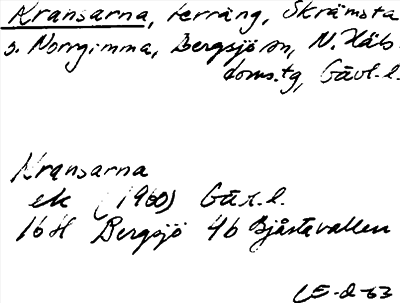 Kransarna, terräng, Skrämsta
s. Norrgimma, Bergsjö sn, N. Häls.
doms.tg, Gävl. l.
Kransarna
ek (1960) Gäv. l.
16 H Bergsjö 4b Bjåstavallen
LE-d-63